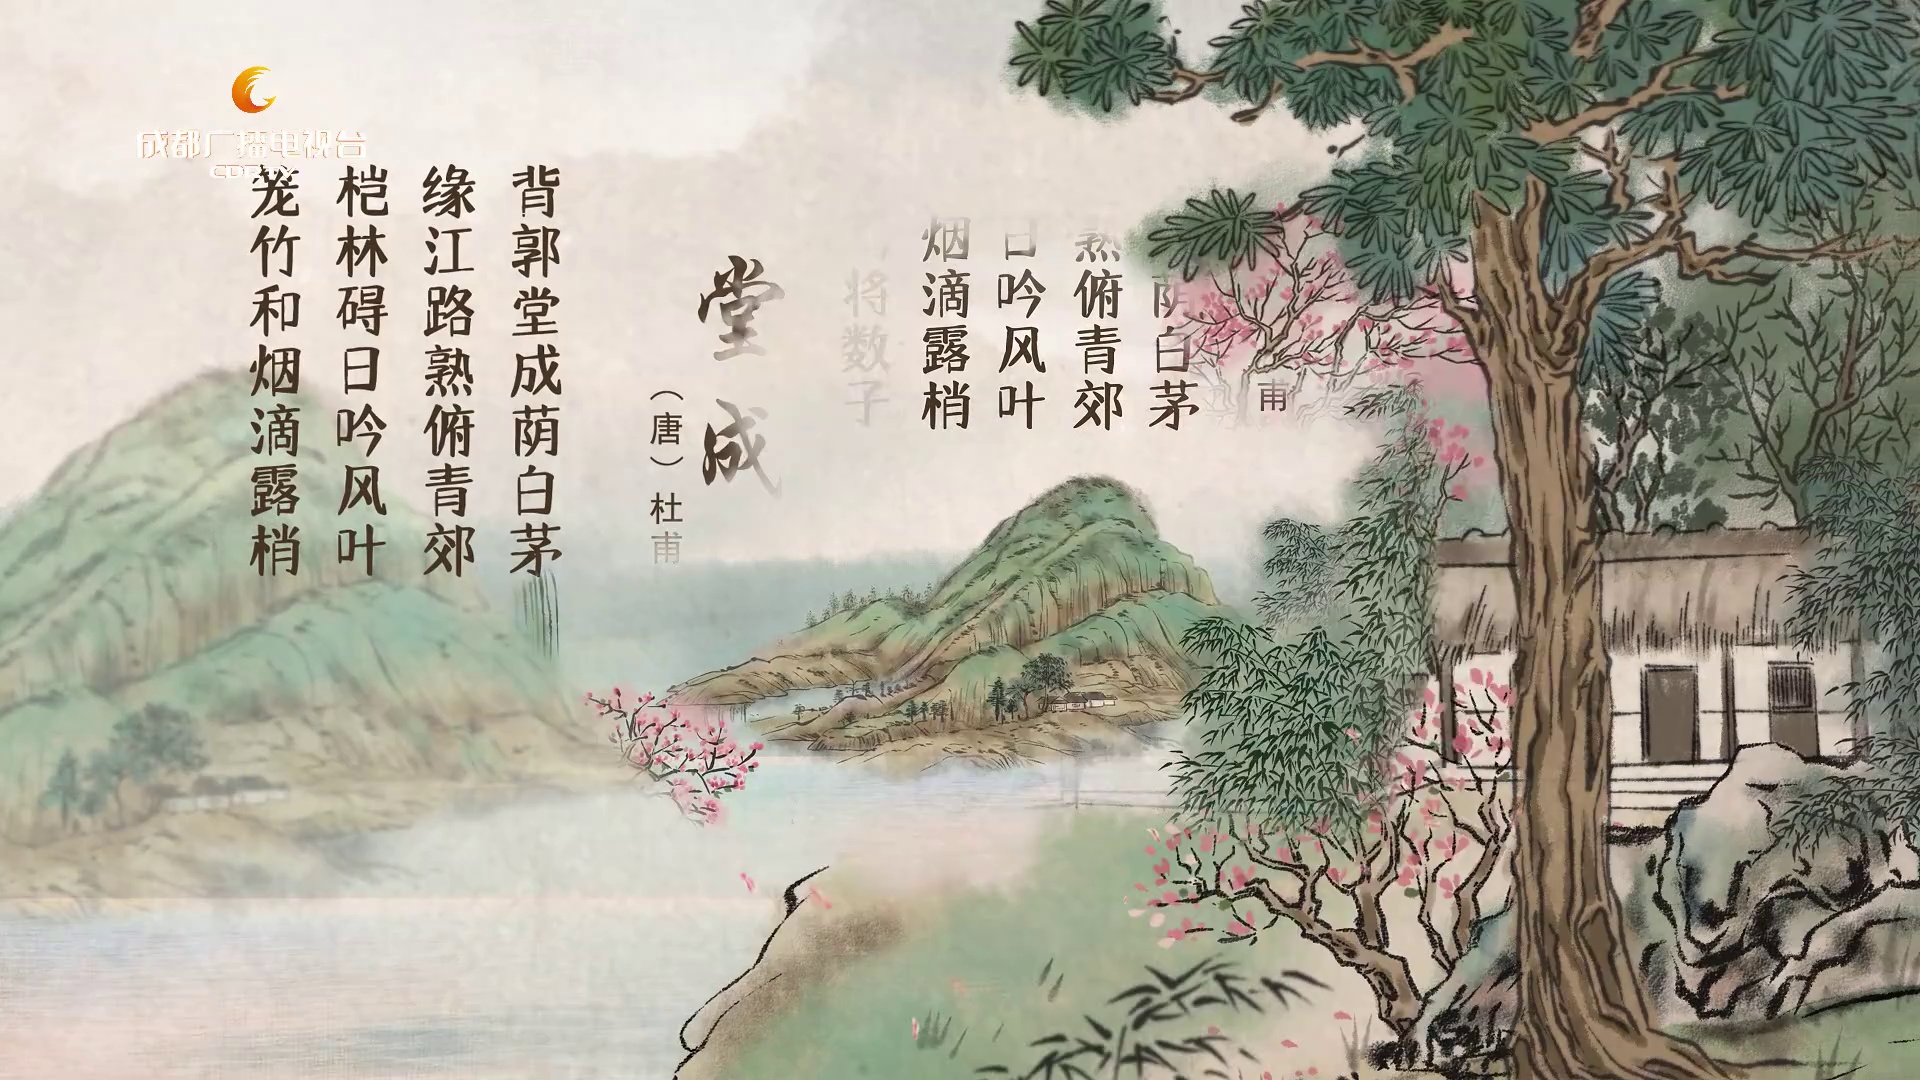 成都广播电视台
CDRTV
堂成
（唐）杜甫
背郭堂成荫白茅
缘江路熟俯青郊
桤林碍日吟风叶
笼竹和烟滴露梢
甫
荫白茅
熟俯青郊
日吟风叶
烟滴露梢
将数子